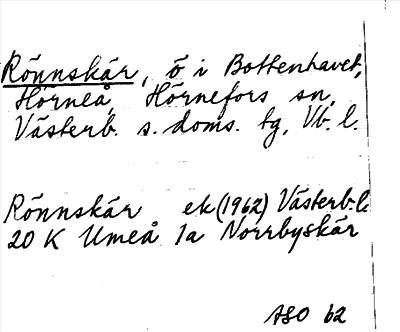 Rönnskär, ö i Bottenhavet,
Hörneå, Hörnefors sn,
Västerb. s. doms. tg, Vb. l.
Rönnskär ek (1962) Västerb. l.
20 K Umeå 1a Norrbyskär
ASO 62